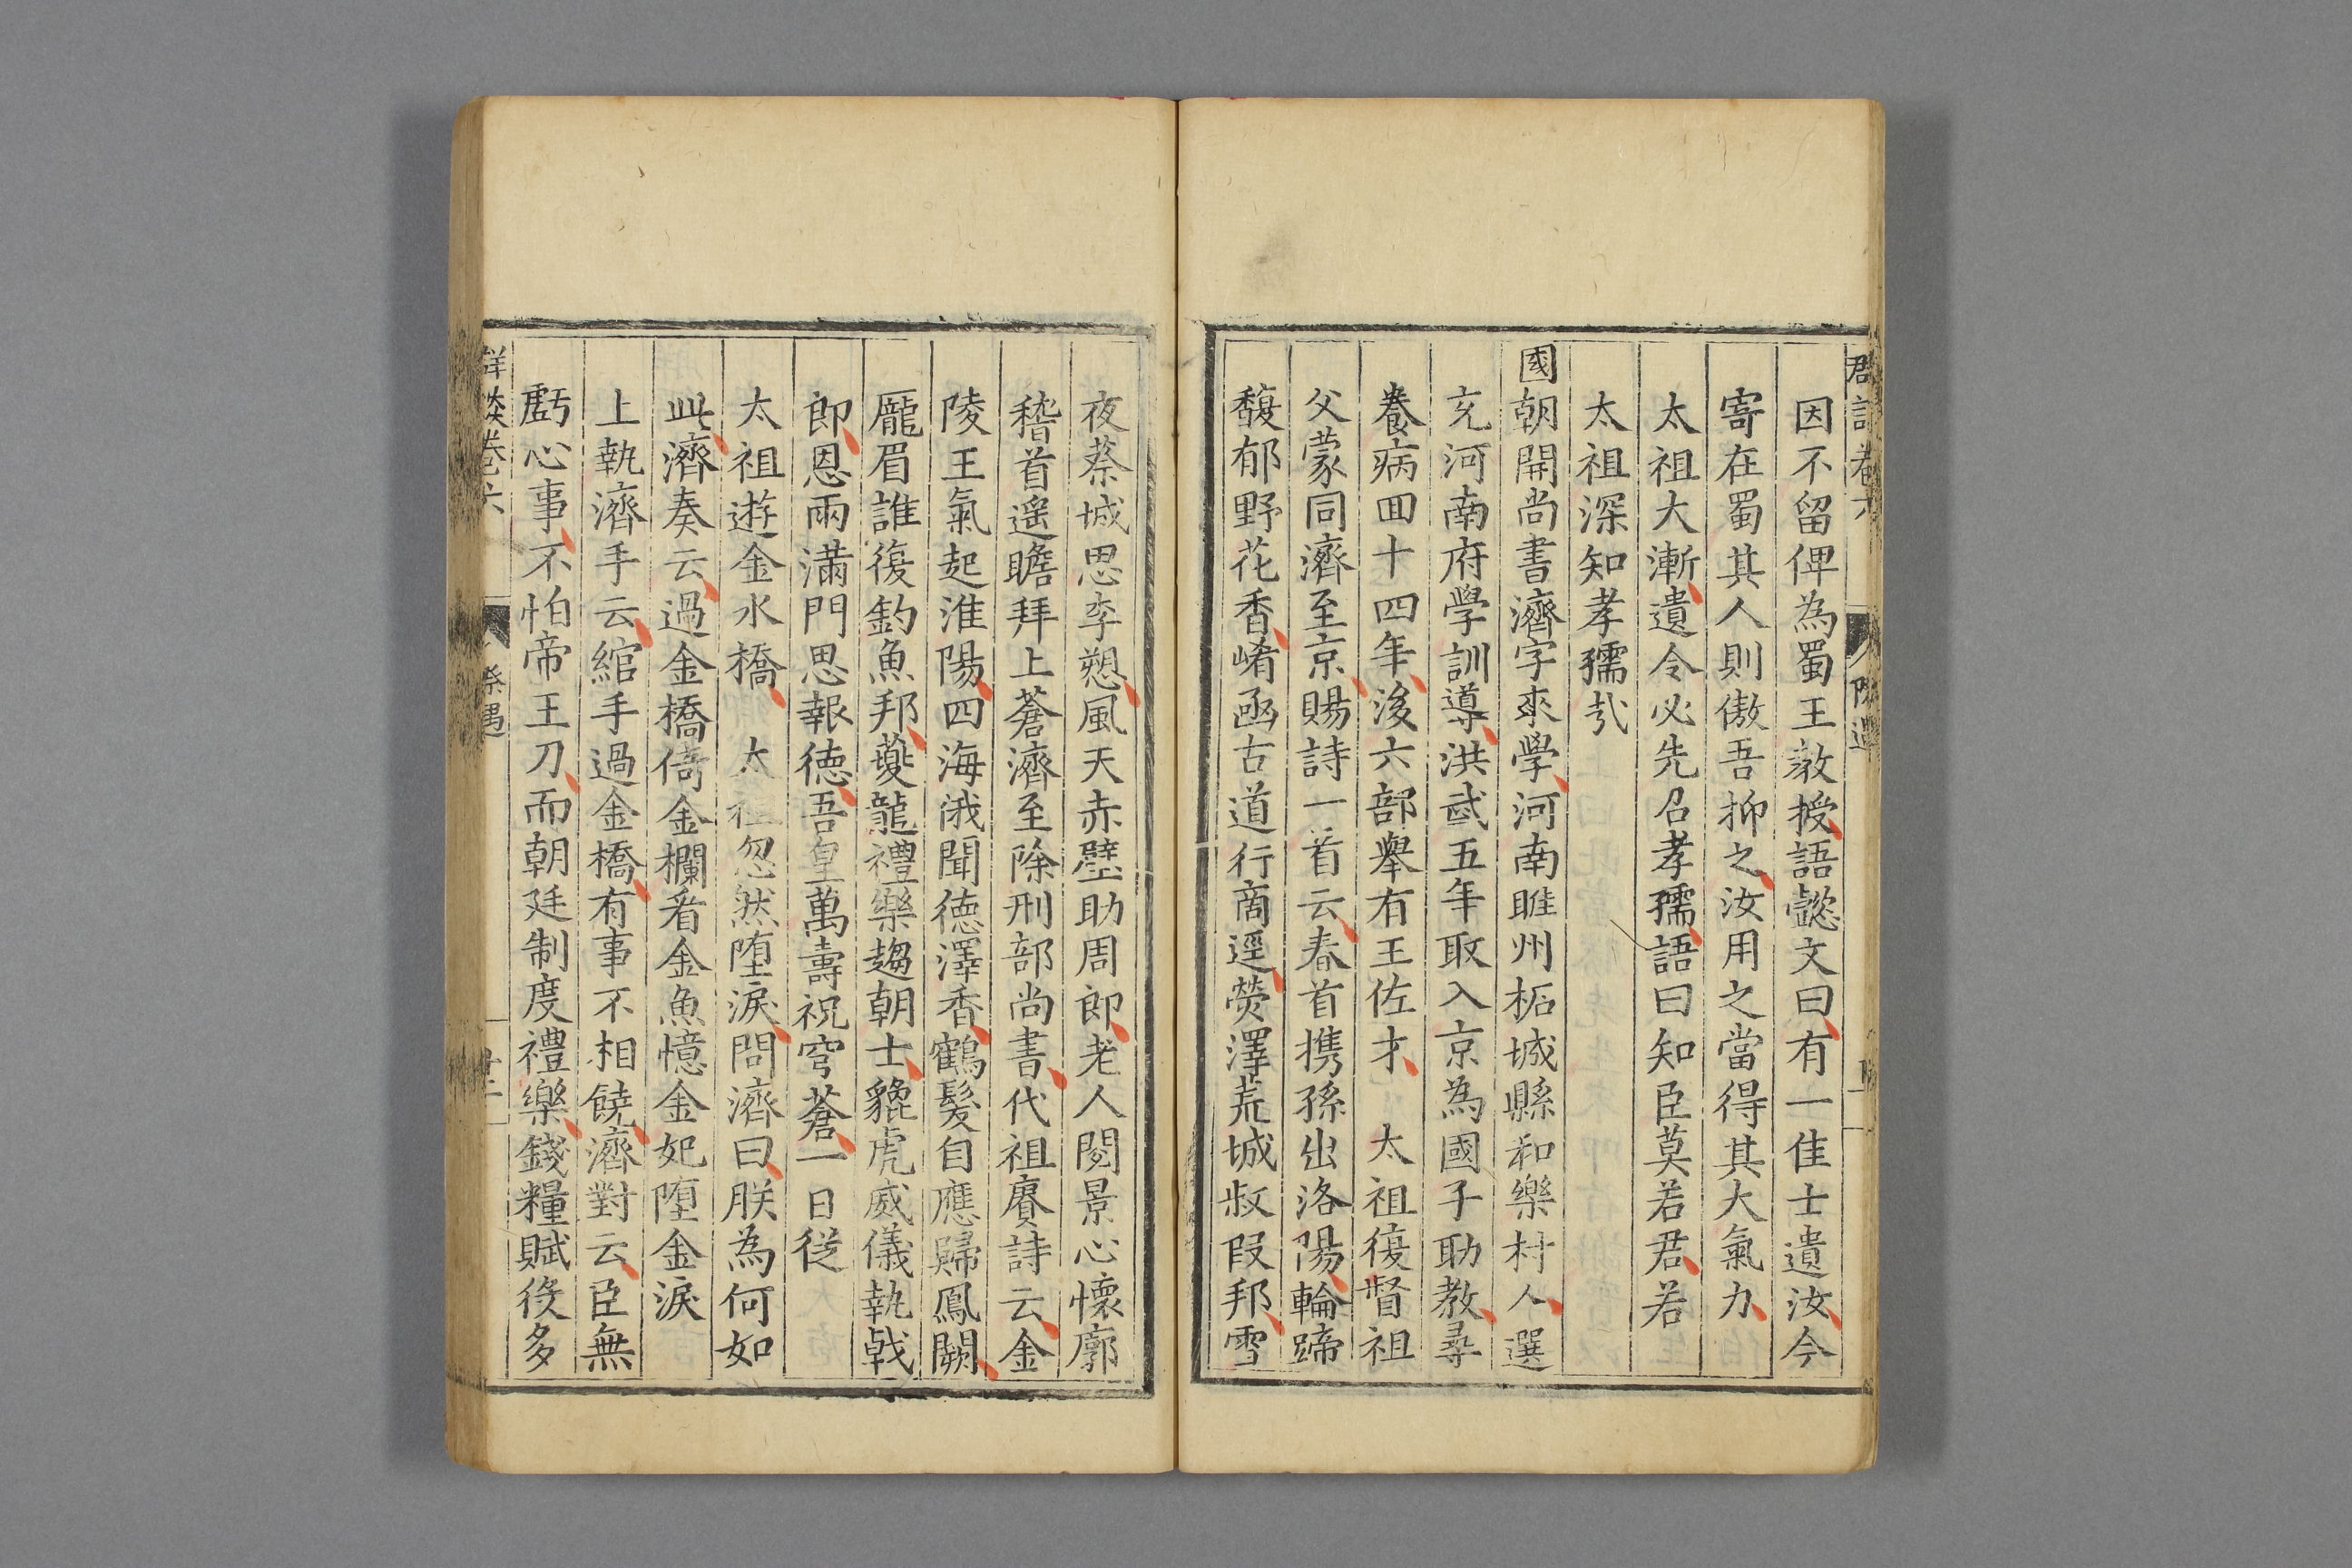 因不留俾為蜀王教授語懿文曰有一佳士遺汝今
寄在蜀其人則傲吾抑之汝用之當得其大氣力
太祖大漸遺令必先召孝孺語曰知臣莫若君若
太祖深知孝孺哉
國朝開尚書濟字來學河南睢州柘城縣和樂村人選
充河南府學訓導洪武五年取入京為國子助教尋
養病囬十四年後六部舉有王佐才 太祖復督祖
父蒙同濟至京賜詩一首云春首携孫出洛陽輪蹄
馥郁野花香崤函古道行商逕滎澤荒城叔段邦雪
夜蔡城思李愬風天赤壁助周郎老人閱景心懷廓
稽首遥瞻拜上蒼濟至除刑部尚書代祖賡詩云金
陵王氣起淮陽四海咸聞德澤香鶴髮自應歸鳳闕
龐眉誰復釣魚邦夔龍禮樂趨朝士貔虎威儀執戟
郎恩兩滿門思報德吾皇萬壽祝穹蒼一日從
太祖遊金水橋 太祖忽然堕淚問濟曰朕為何如
此濟奏云過金橋倚金欄看金魚憶金妃堕金淚
上執濟手云綰手過金橋有事不相饒濟對云臣無
虧心事不怕帝王刀而朝廷制度禮樂錢糧賦役多
卷六